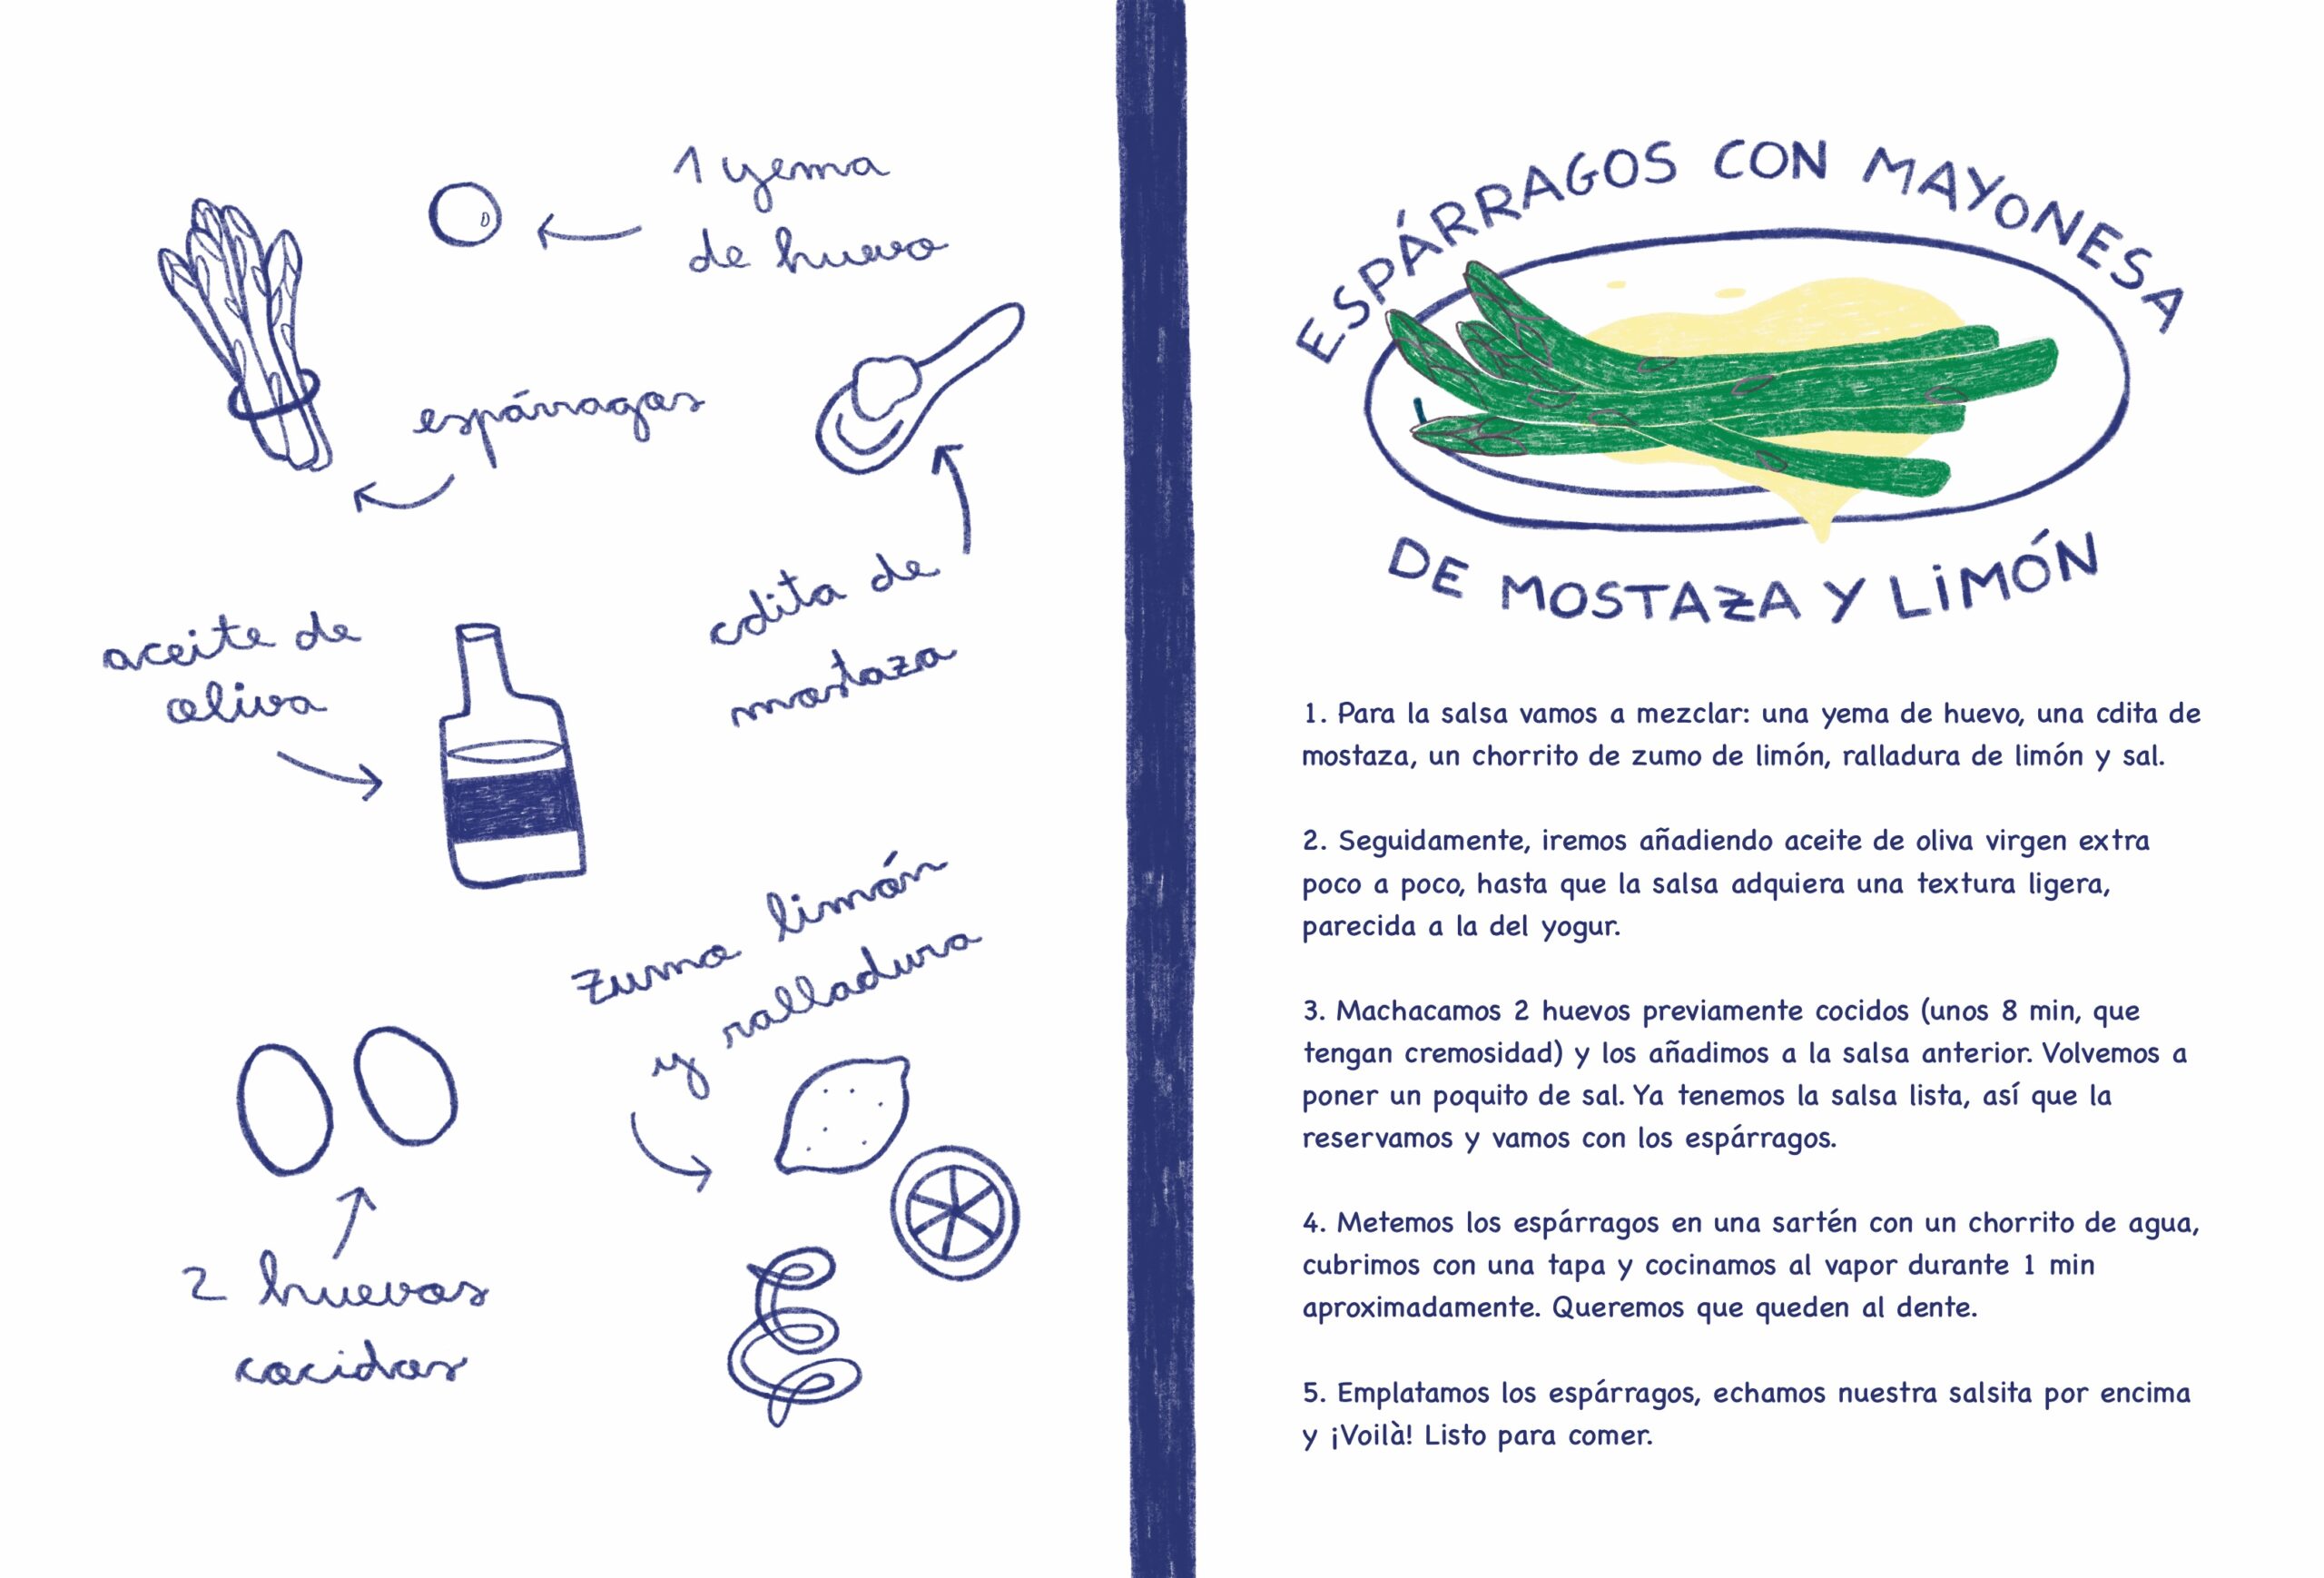 1 yema
de huevo
espárragos
cdita de
mostaza
aceite de
oliva
zumo limón
y ralladura
2 huevos
cocidos
ESPÁRRAGOS CON MAYONESA
DE MOSTAZA Y LIMÓN
1. Para la salsa vamos a mezclar: una yema de huevo, una cdita de
mostaza, un chorrito de zumo de limón, ralladura de limón y sal.
2. Seguidamente, iremos añadiendo aceite de oliva virgen extra
poco a poco, hasta que la salsa adquiera una textura ligera,
parecida a la del yogur.
3. Machacamos 2 huevos previamente cocidos (unos 8 min, que
tengan cremosidad) y los añadimos a la salsa anterior. Volvemos a
poner un poquito de sal. Ya tenemos la salsa lista, así que la
reservamos y vamos con los espárragos.
4. Metemos los espárragos en una sartén con un chorrito de agua,
cubrimos con una tapa y cocinamos al vapor durante 1 min
aproximadamente. Queremos que queden al dente.
5. Emplatamos los espárragos, echamos nuestra salsita por encima
y ¡Voilà! Listo para comer.